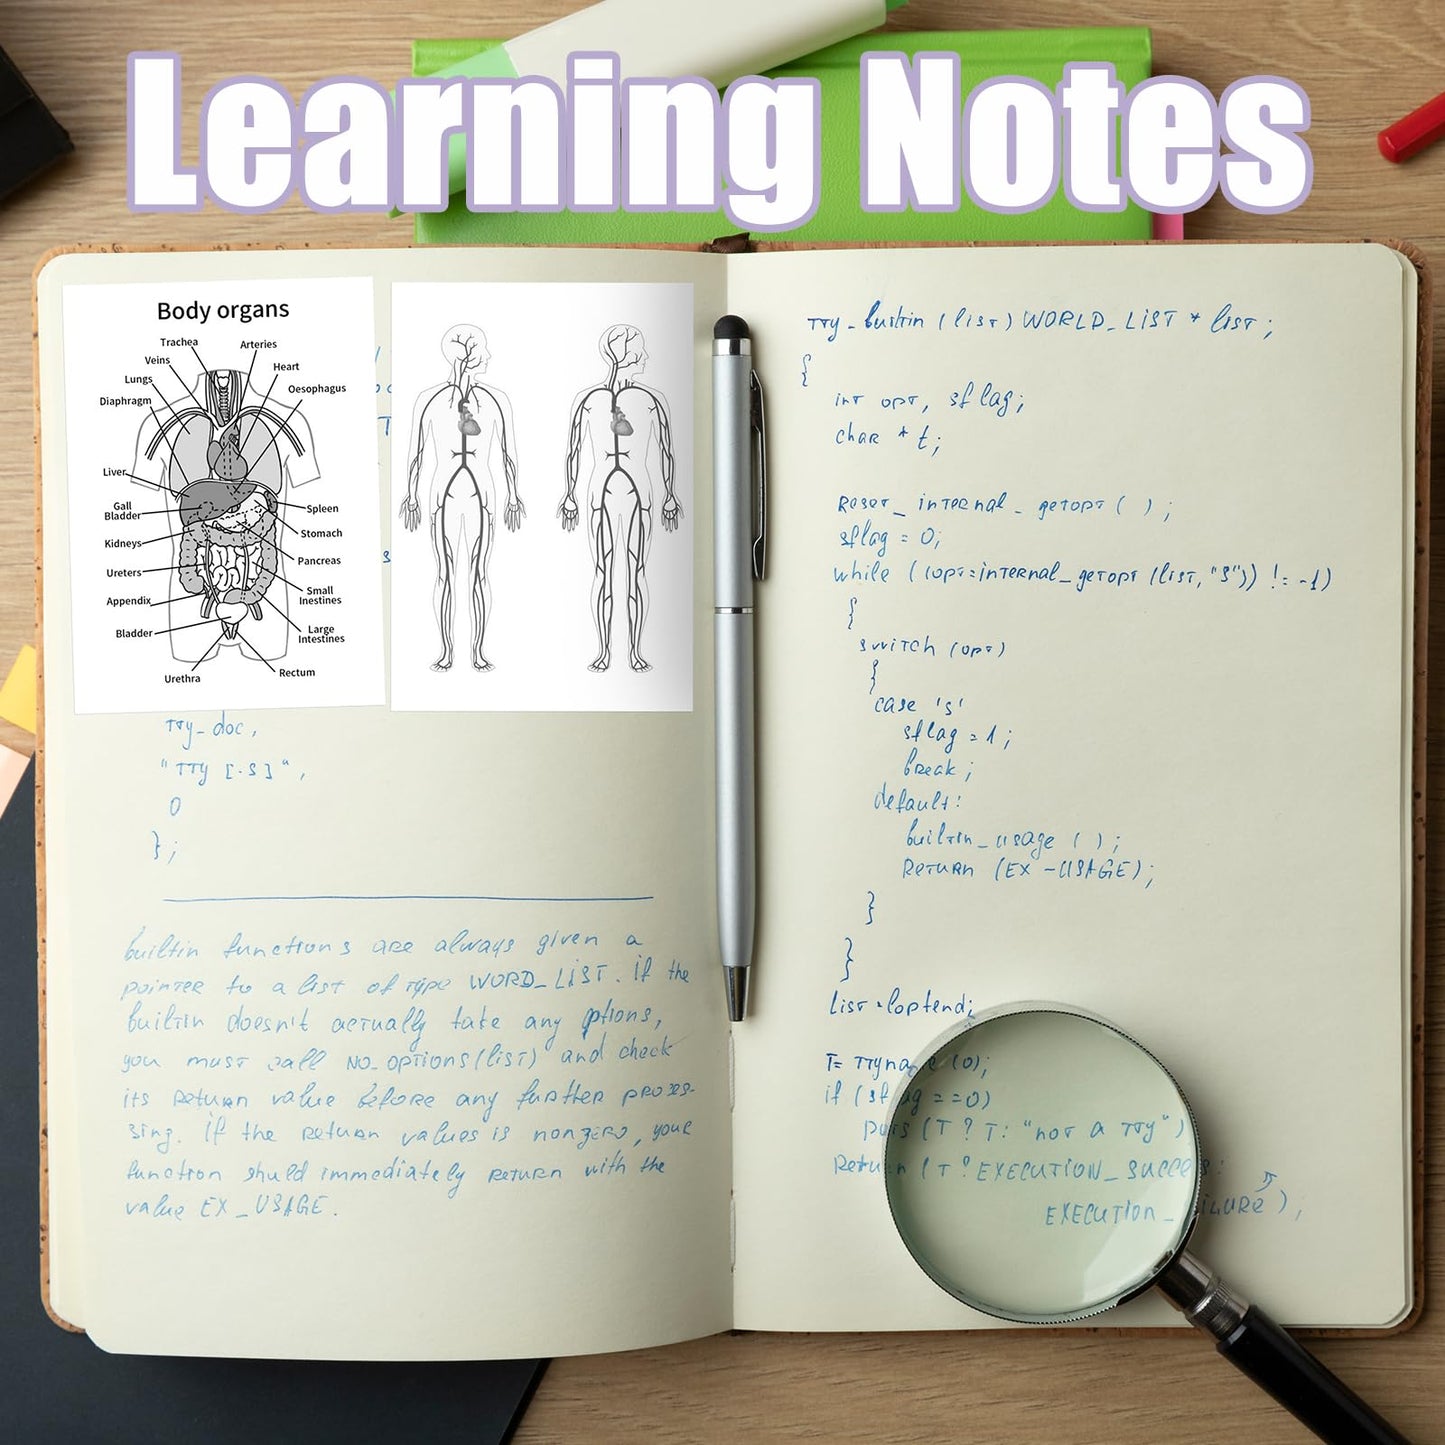 Learning Notes
Body organs
Trachea
Arteries
Veins
Heart
Lungs
Oesophagus
Diaphragm
Liver
Gall
Bladder
Spleen
Stomach
Kidneys
Pancreas
Ureters
Small
Inestines
Appendix
Large
Intestines
Bladder
Urethra
Rectum
TTy_doc,
"TTy [-S]",
0
};
builtin functions are always given a
pointer to a list of type WORD_LIST. if the
builtin doesn't actually take any ptions,
you must call no_options(list) and check
its return value before any further proces-
sing. if the return values is nonzero, your
function should immediately return with the
value EX_USAGE.
TTy_builtin (list) WORLD_LIST * list;
{
int opt, sflag;
char * t;
Reset_internal_getopt ( );
sflag = 0;
while ((opt=internal_getopt (list, "s")) != -1)
{
switch (opt)
{
case 's'
sflag = 1;
break;
default:
builtin_usage ( );
Return (EX-USAGE);
}
}
list = loptend;
T= TTyname (0);
if (sflag ==0)
puts (T ? T: "not a TTy")
Return (T ? EXECUTION_
EXECUTION_